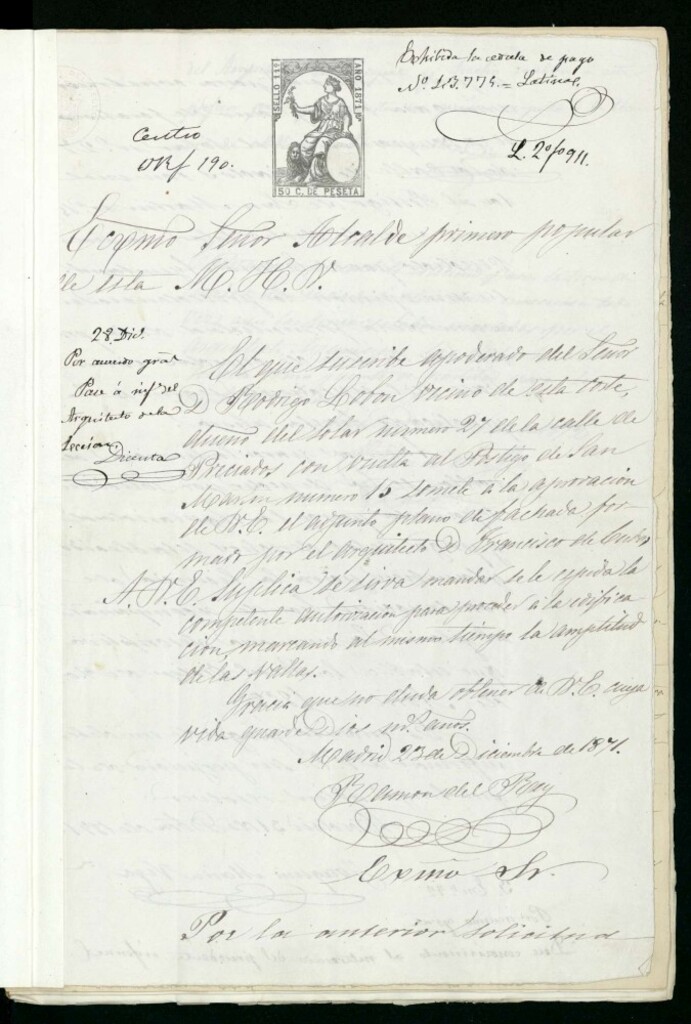 Exhibida la cedula de pago
Nº 113.775. = Latina.
L. 2º fo 911.
SELLO 11º
AÑO 1871
50 C. DE PESETA
Centro
190.
Excmo Señor Alcalde primero popular
de esta M. H. V.
28 Dic.
Por acuerdo
Pase á inf.e del
Arquitecto de la
Seccion.
El que suscribe apoderado del Señor
D Rodrigo Lobon vecino de esta corte,
dueño del solar numero 27 de la calle de
Preciados con vuelta al Postigo de San
Martin numero 13 somete á la aprovacion
de V.E. el adjunto plano de fachada for
mado por el arquitecto D Francisco de Cubas
A. V. E. Suplica se sirva mandar se le espida la
competente autorizacion para proceder á la edifica
cion, marcando al mismo tiempo la amplitud
de las vallas.
Gracia que no duda obtener de V.E. cuya
vida guarde Dios ms. años.
Madrid 23 de Diciembre de 1871.
Ramon del Rey
Exmo Sr.
Por la anterior solicitud